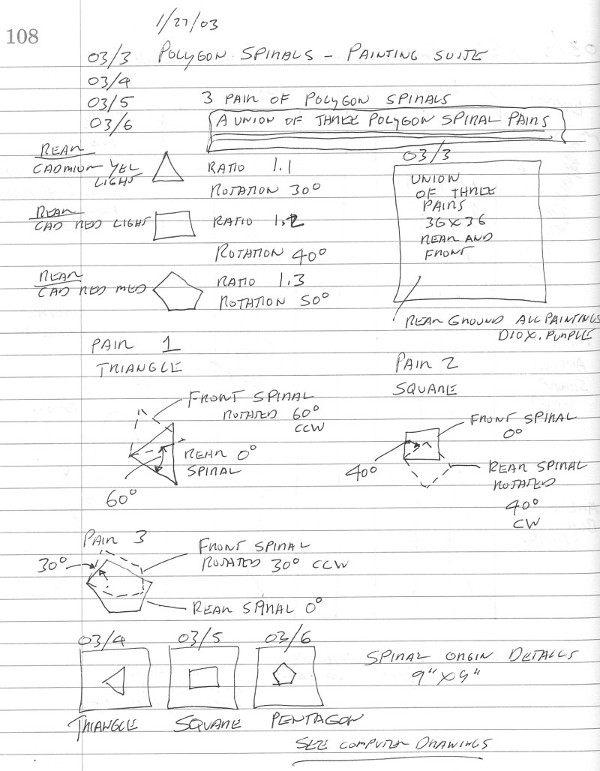 108
1/27/03
03/3 POLYGON SPIRALS - PAINTING SUITE
03/4
03/5 3 PAIR OF POLYGON SPIRALS
03/6 A UNION OF THREE POLYGON SPIRAL PAIRS
REAR
CADMIUM YEL
LIGHT
RATIO 1.1
ROTATION 30°
REAR
CAD RED LIGHT
RATIO 1.2
ROTATION 40°
REAR
CAD RED MED
RATIO 1.3
ROTATION 50°
03/3
UNION
OF THREE
PAIRS
36X36
REAR AND
FRONT
REAR GROUND ALL PAINTINGS
DIOX. PURPLE
PAIR 1
TRIANGLE
FRONT SPIRAL
ROTATED 60°
CCW
REAR 0°
SPIRAL
60°
PAIR 2
SQUARE
FRONT SPIRAL
0°
40°
REAR SPIRAL
ROTATED
40°
CW
PAIR 3
30°
FRONT SPIRAL
ROTATED 30° CCW
REAR SPIRAL 0°
03/4 03/5 03/6
TRIANGLE SQUARE PENTAGON
SPIRAL ORIGIN DETAILS
9"X9"
SEE COMPUTER DRAWINGS